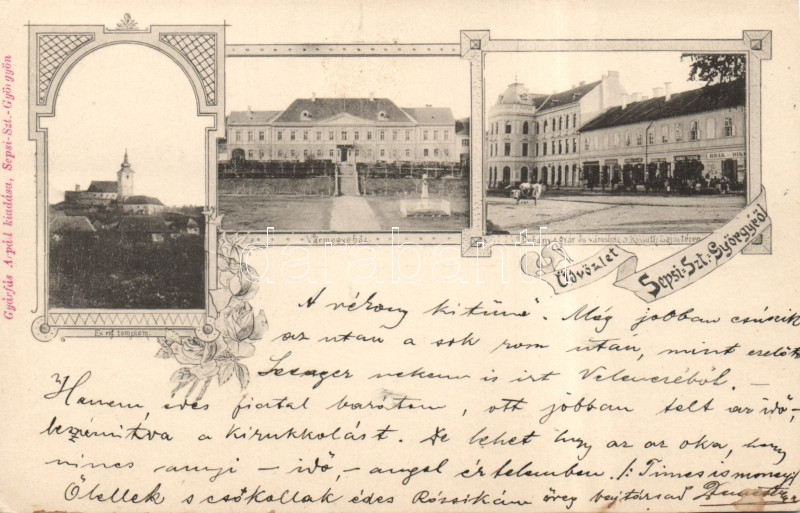 Gyárfás Árpád kiadása, Sepsi-Szt.-Györgyön
Ev. ref. templom.
Vármegyeház.
darabanth.com
Üdvözlet
Sepsi-Szt.-Györgyről
A vékony kitünő. Még jobban csúszik
az utan a sok rom után, mint ezelőtt
nekem is irt Velenczéből. —
Hanem, édes fiatal barátom, ott jobban telt az idő,
beszámitva a kirukkolást. De lehet hogy az az oka, hogy
nincs annyi — idő, — angol értelemben. /: Times is money :/
Ölellek s csókollak édes öreg